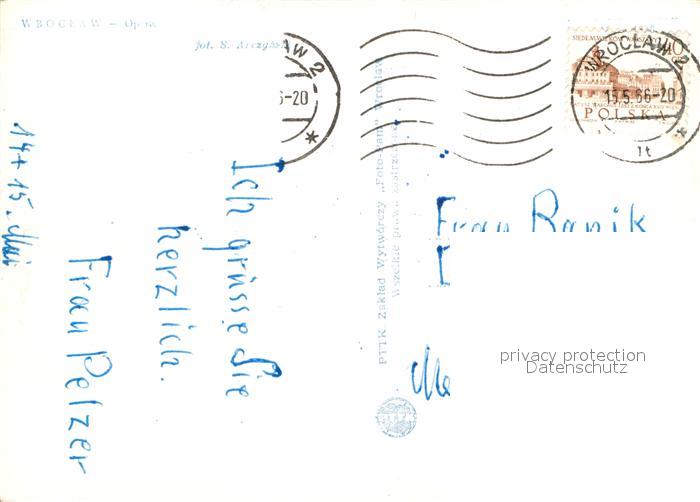 WROCŁAW — Opera
fot. S. Arczyński
AW 2
5-20
WROCŁAW 2
15.5.66-20
1t
40
POLSKA
14+15. Mai
Ich grüsse Sie
herzlich.
Frau Pelzer
PTTK Zakład Wytwórczy „Foto-Pam" Wrocław
Wszelkie prawa zastrzeżone
Frau
Me
privacy protection
Datenschutz